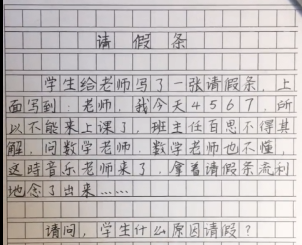 请假条
学生给老师写了一张请假条，上
面写到：老师，我今天4567，所
以不能来上课了，班主任百思不得其
解，问数学老师，数学老师也不懂，
这时音乐老师来了，拿着请假条流利
地念了出来……
请问，学生什么原因请假？